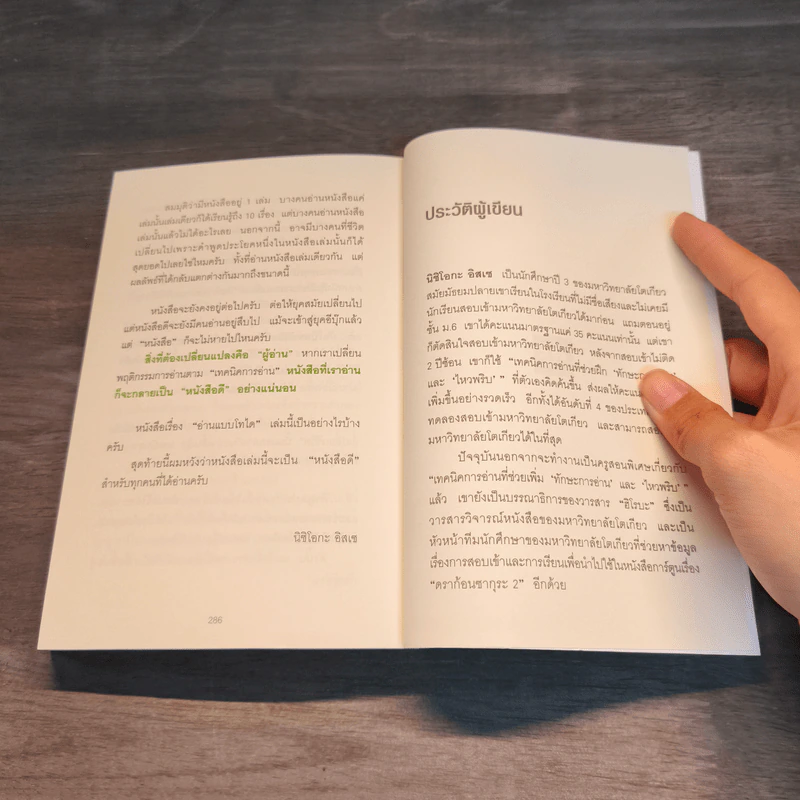 สมมุติว่ามีหนังสืออยู่ 1 เล่ม บางคนอ่านหนังสือแค่
เล่มนั้นเล่มเดียวก็ได้เรียนรู้ถึง 10 เรื่อง แต่บางคนอ่านหนังสือ
เล่มนั้นแล้วไม่ได้อะไรเลย นอกจากนี้ อาจมีบางคนที่ชีวิต
เปลี่ยนไปเพราะคำพูดประโยคหนึ่งในหนังสือเล่มนั้นก็ได้
สุดยอดไปเลยใช่ไหมครับ ทั้งที่อ่านหนังสือเล่มเดียวกัน แต่
ผลลัพธ์ที่ได้กลับแตกต่างกันมากถึงขนาดนี้
หนังสือจะยังคงอยู่ต่อไปครับ ต่อให้ยุคสมัยเปลี่ยนไป
แต่หนังสือดีจะยังมีคนอ่านอยู่สืบไป แม้จะเข้าสู่ยุคอีบุ๊กแล้ว
แต่ “หนังสือ” ก็จะไม่หายไปไหนครับ
สิ่งที่ต้องเปลี่ยนแปลงคือ “ผู้อ่าน” หากเราเปลี่ยน
พฤติกรรมการอ่านตาม “เทคนิคการอ่าน” หนังสือที่เราอ่าน
ก็จะกลายเป็น “หนังสือดี” อย่างแน่นอน
หนังสือเรื่อง “อ่านแบบโทได” เล่มนี้เป็นอย่างไรบ้าง
ครับ
สุดท้ายนี้ผมหวังว่าหนังสือเล่มนี้จะเป็น “หนังสือดี”
สำหรับทุกคนที่ได้อ่านครับ
นิชิโอกะ อิสเซ
286
ประวัติผู้เขียน
นิชิโอกะ อิสเซ เป็นนักศึกษาปี 3 ของมหาวิทยาลัยโตเกียว
สมัยมัธยมปลายเขาเรียนในโรงเรียนที่ไม่มีชื่อเสียงและไม่เคยมี
นักเรียนสอบเข้ามหาวิทยาลัยโตเกียวได้มาก่อน แถมตอนอยู่
ชั้น ม.6 เขาได้คะแนนมาตรฐานแค่ 35 คะแนนเท่านั้น แต่เขา
ก็ตัดสินใจสอบเข้ามหาวิทยาลัยโตเกียว หลังจากสอบเข้าไม่ติด
2 ปีซ้อน เขาก็ใช้ “เทคนิคการอ่านที่ช่วยฝึก ‘ทักษะการอ่าน’
และ ‘ไหวพริบ’ ” ที่ตัวเองคิดค้นขึ้น ส่งผลให้คะแนน
เพิ่มขึ้นอย่างรวดเร็ว อีกทั้งได้อันดับที่ 4 ของประเทศ
ทดลองสอบเข้ามหาวิทยาลัยโตเกียว และสามารถสอบ
มหาวิทยาลัยโตเกียวได้ในที่สุด
ปัจจุบันนอกจากจะทำงานเป็นครูสอนพิเศษเกี่ยวกับ
“เทคนิคการอ่านที่ช่วยเพิ่ม ‘ทักษะการอ่าน’ และ ‘ไหวพริบ’ ”
แล้ว เขายังเป็นบรรณาธิการของวารสาร “ฮิโรบะ” ซึ่งเป็น
วารสารวิจารณ์หนังสือของมหาวิทยาลัยโตเกียว และเป็น
หัวหน้าทีมนักศึกษาของมหาวิทยาลัยโตเกียวที่ช่วยหาข้อมูล
เรื่องการสอบเข้าและการเรียนเพื่อนำไปใช้ในหนังสือการ์ตูนเรื่อง
“ดราก้อนซากุระ 2” อีกด้วย